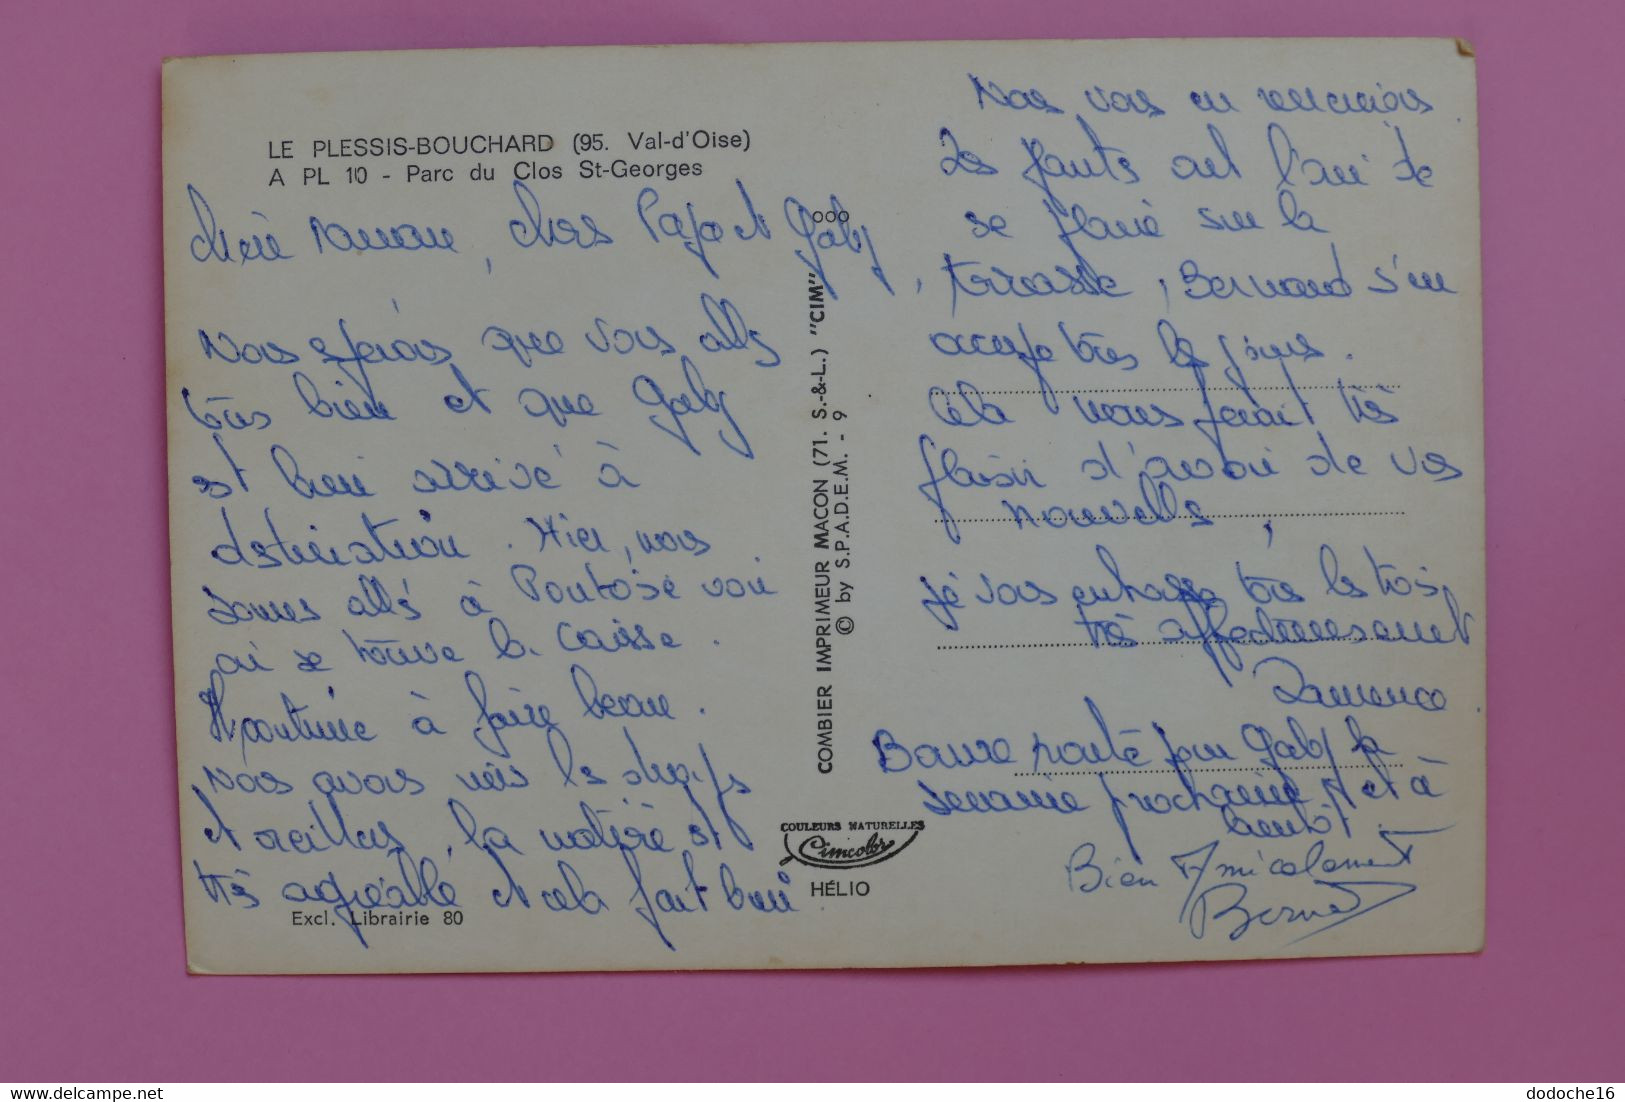 LE PLESSIS-BOUCHARD (95. Val-d'Oise)
A PL 10 - Parc du Clos St-Georges
Chère Maman, chers Papa et Gaby,
Nous espérons que vous allez
très bien et que Gaby
est bien arrivé à
destination. Hier, nous
sommes allés à Pontoise voir
où se trouve la caisse.
Il continue à faire beau.
Nous avons mis les draps
et oreillers, la matière est
très agréable et cela fait bien
Excl. Librairie 80
COMBIER IMPRIMEUR MACON (71. S.-&-L.) "CIM"
© by S.P.A.D.E.M. - 9
COULEURS NATURELLES
Cimcolor
HÉLIO
Nous vous en remercions.
Les plants ont l'air de
se plaire sur la
terrasse, Bernard s'en
occupe tous les jours.
Cela nous ferait très
plaisir d'avoir de vos
nouvelles,
je vous embrasse tous les trois,
très affectueusement
Bonne route pour Gaby la
semaine prochaine et à
bientôt.
Bien Amicalement
dodoche16